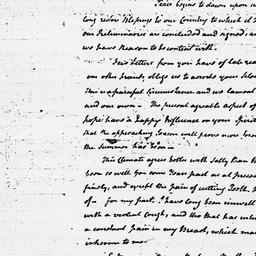 Peace begins to dawn upon us
long reign Blessings to our Country to which it
our Preliminaries are concluded and signed, an
we have Reason to be content with.
Your Letters from you have of late rea
our other friends, oblige us to
This is a painful Circumstance and we cannot
and our own - The present agreable aspect of
hope have a happy Influence on your Spirits
that the approaching Season will prove more
the Summer has been -
This Climate agrees both with Sally than
been so well you some Years past as at presen
finely, and except the pain of cutting Teeth, h
of - for my part, I have long been unwell
with a violent Cough, and tho that has
a constant Pain in my Breast, which mak
irksome to me.